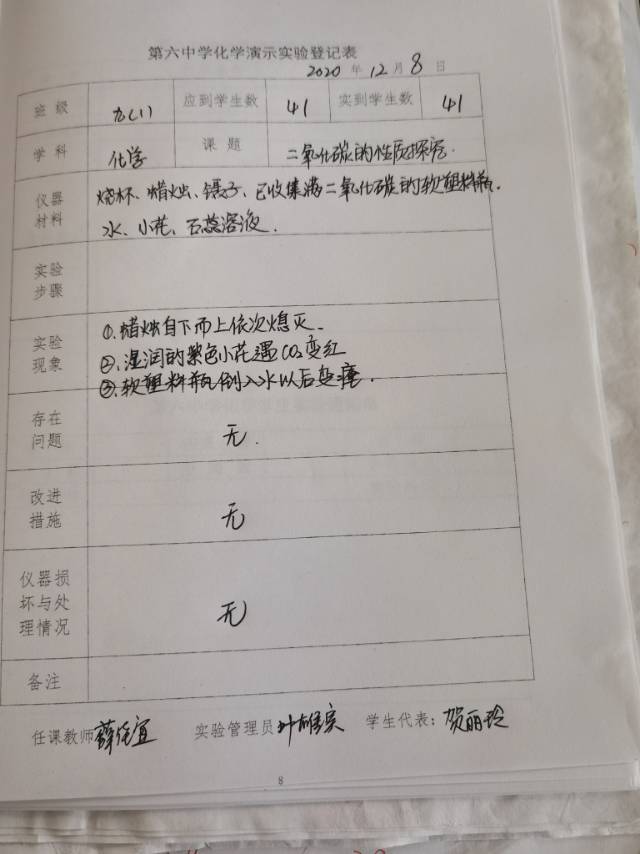 第六中学化学演示实验登记表
2020 年 12 月 8 日
班级 九(1) 应到学生数 41 实到学生数 41
学科 化学 课题 二氧化碳的性质探究.
仪器材料 烧杯、蜡烛、镊子、已收集满二氧化碳的软塑料瓶.
水、小花、石蕊溶液.
实验步骤
实验现象 ①.蜡烛自下而上依次熄灭.
②.湿润的紫色小花遇CO2变红
③.软塑料瓶倒入水以后变瘪.
存在问题 无.
改进措施 无
仪器损坏与处理情况 无
备注
任课教师 实验管理员 学生代表: 贺丽玲
8